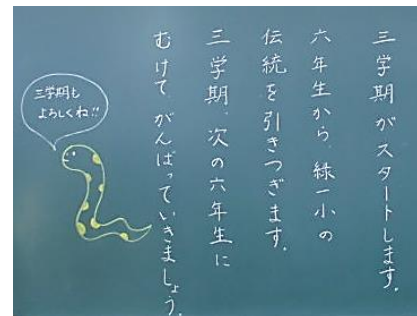 三学期がスタートします。
六年生から、緑一小の
伝統を引きつぎます。
三学期、次の六年生に
むけて、がんばっていきましょう。
三学期も
よろしくね!!